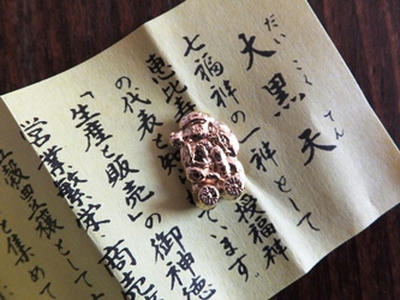 だいこくてん
大黒天
七福神の一神として
恵比寿 授福神
の代表と知 ています。
「生産と販売」の御神徳
営業繁栄・商売
五穀豊穣として
を集めて